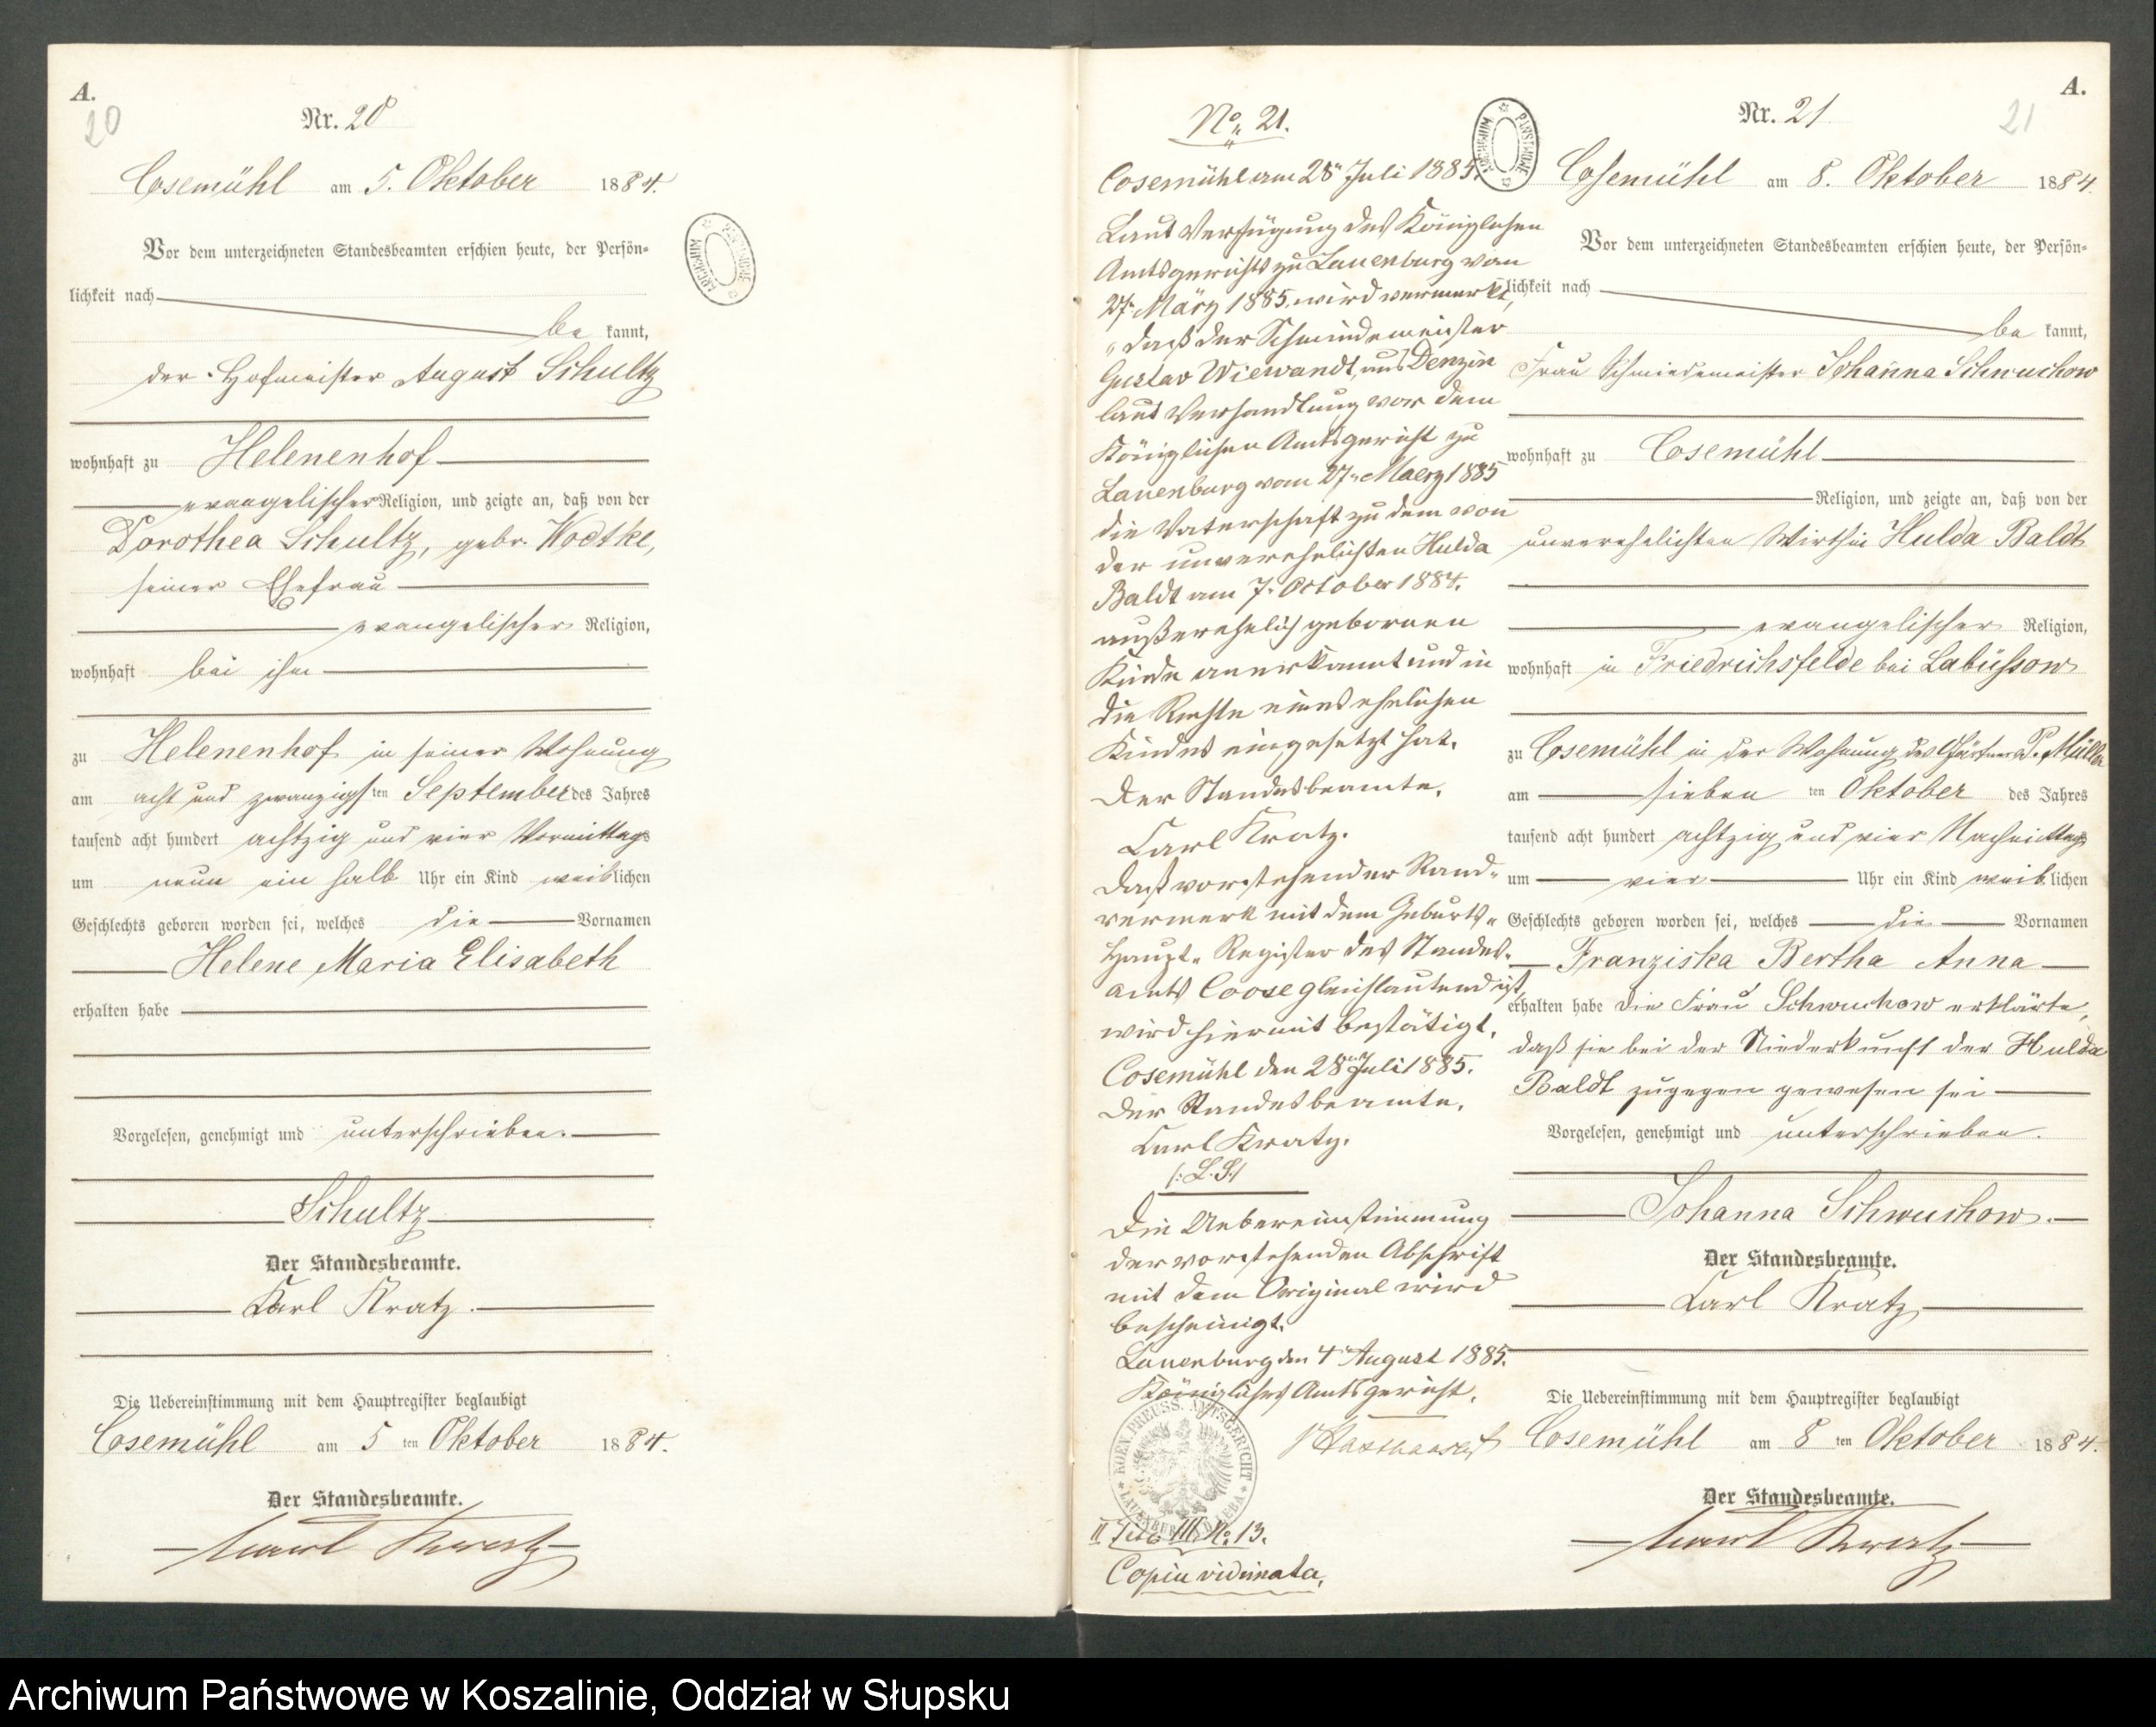 A.
20
Nr. 20
Cosemühl am 5. Oktober 1884.
Vor dem unterzeichneten Standesbeamten erschien heute, der Persön-
lichkeit nach
be kannt,
der Hofmeister August Schultz
wohnhaft zu Helenenhof
evangelischer Religion, und zeigte an, daß von der
Dorothea Schultz, gebr. Wodtke,
seiner Ehefrau
evangelischer Religion,
wohnhaft bei ihm
zu Helenenhof in seiner Wohnung
am acht und zwanzigsten September des Jahres
tausend acht hundert achtzig und vier Vormittags
um neun ein halb Uhr ein Kind weiblichen
Geschlechts geboren worden sei, welches die Vornamen
Helene Maria Elisabeth
erhalten habe
Vorgelesen, genehmigt und unterschrieben.
Schultz
Der Standesbeamte.
Karl Kratz.
Die Uebereinstimmung mit dem Hauptregister beglaubigt
Cosemühl am 5 ten Oktober 1884.
Der Standesbeamte.
Karl Kratz
ARCHIWUM PAŃSTWOWE
No. 21.
Cosemühl am 28n Juli 1885.
Laut Verfügung des Königlichen
Amtsgerichts zu Lauenburg von
27n März 1885, wird vermerkt,
"daß der Schmiedemeister
Gustav Wiewandt, aus Denzin
laut Verhandlung vor dem
Königlichen Amtsgericht zu
Lauenburg vom 27n Maerz 1885
die Vaterschaft zu dem von
der unverehelichten Hulda
Baldt am 7. October 1884.
außerehelich gebornen
Kinde anerkannt und in
die Rechte eines ehelichen
Kindes eingesetzt hat.
Der Standesbeamte.
Carl Kratz.
Daß vorstehender Rand-
vermerk mit dem Geburts-
Haupt-Register des Standes-
amts Coose gleichlautend ist,
wird hiermit bestätigt.
Cosemühl den 28n Juli 1885.
Der Standesbeamte.
Carl Kratz.
/: L. S. /
Die Uebereinstimmung
der vorstehenden Abschrift
mit dem Original wird
bescheinigt.
Lauenburg den 4n August 1885.
Königliches Amtsgericht.
KOEN. PREUSS. AMTSGERICHT
II Tit. III No. 13.
Copia vidimata.
ARCHIWUM PAŃSTWOWE
A.
21
Nr. 21
Cosemühl am 8. Oktober 1884.
Vor dem unterzeichneten Standesbeamten erschien heute, der Persön-
lichkeit nach
be kannt,
Frau Schmiedemeister Johanna Schwuchow
wohnhaft zu Cosemühl
Religion, und zeigte an, daß von der
unverehelichten Wirthin Hulda Baldt
evangelischer Religion,
wohnhaft in Friedrichsfelde bei Labüssow
zu Cosemühl in der Wohnung des Gärtners P. Müller
am sieben ten Oktober des Jahres
tausend acht hundert achtzig und vier Nachmittags
um vier Uhr ein Kind weiblichen
Geschlechts geboren worden sei, welches die Vornamen
Franziska Bertha Anna
erhalten habe Die Frau Schwuchow erklärte,
daß sie bei der Niederkunft der Hulda
Baldt zugegen gewesen sei
Vorgelesen, genehmigt und unterschrieben.
Johanna Schwuchow.
Der Standesbeamte.
Carl Kratz
Die Uebereinstimmung mit dem Hauptregister beglaubigt
Cosemühl am 8 ten Oktober 1884.
Der Standesbeamte.
Karl Kratz
Archiwum Państwowe w Koszalinie, Oddział w Słupsku